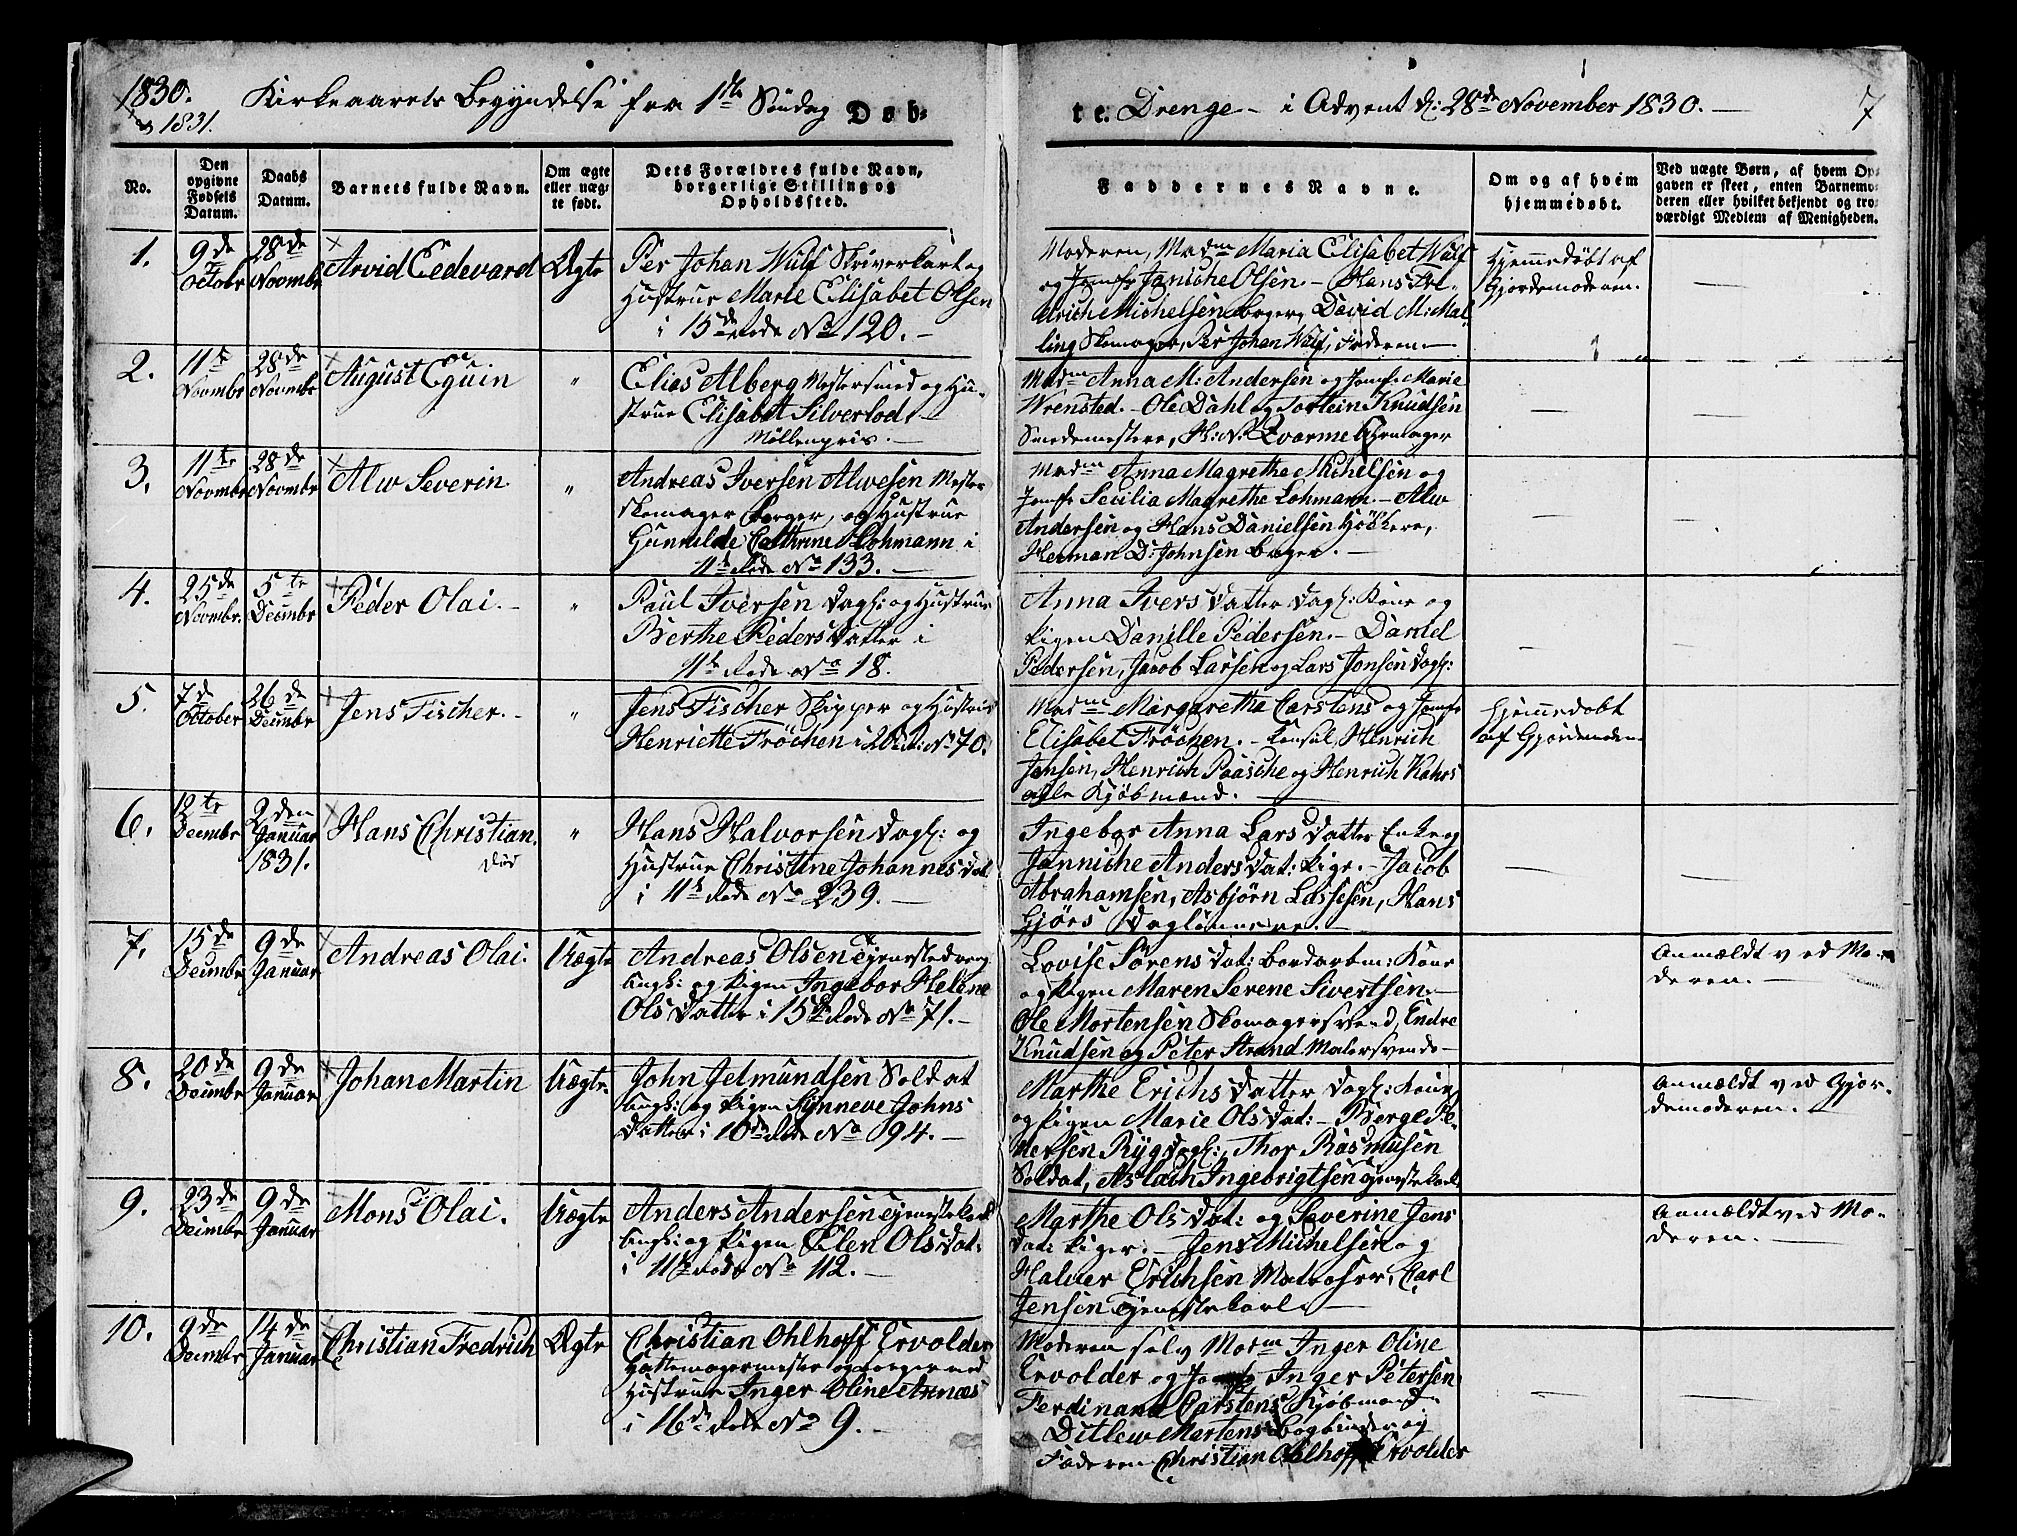 1830.
& 1831.
Kirkeaarets Begyndelse fra 1ste Søndag Døb-
te Drenge - i Advent d: 28de November 1830. -
7
No.
Den opgivne Fødsels Datum.
Daabs Datum.
Barnets fulde Navn.
Om ægte eller uægte født.
Dets Forældres fulde Navn, borgerlige Stilling og Opholdssted.
Faddernes Navne.
Om og af hvem hjemmedøbt.
Ved uægte Børn, af hvem Opgaven er skeet, enten Barnemoderen eller hvilket bekjendt og troværdigt Medlem af Menigheden.
1.
9de Octobr
28de Novmbr
Arvid Eedevard
Ægte
Per Johan Wulf Skriverkarl og
Hustrue Marie Elisabet Olsen
i 15de Rode No 120. -
Moderen, Madm Maria Elisabet Wulf
og Jomfr Janiche Olsen. - Hans Fre-
drich Michelsen Borger, David M: Mal-
ling Skomager, Per Johan Wulf, Faderen. -
Hjemmedøbt af
Gjordemoderen.
2.
11te Novmbr
28de Novmbr
August Eguin
"
Elias Alberg Mestersmed og Hu-
strue Elisabet Silverlod. -
Møllenpris. -
Madm Anna M: Andersen og Jomfr Marie
Wrensted. - Ole Dahl og Tostein Knudsen
Smedemestere, H: N: Qvarme
3.
11te Novmbr
28de Novmbr
Alw Severin.
"
Andreas Iversen Alwesen Mester
Skomager Borger, og Hustrue
Gunnilde Cathrine Lohmann i
11te Rode No 133. -
Madm Anna Magrethe Michelsen og
Jomfr Secilia Magrethe Lohmann. - Alw
Andersen og Hans Danielsen Høkkere,
Herman D: Johnsen Bager. -
4.
25de Novmbr.
5te Decmbr
Peder Olai. -
"
Paul Iversen Dagl: og Hustrue
Berthe Peders Datter i
11te Rode No 18.
Anna Ivers Datter Dagl: Kone og
Pigen Danille Pedersen. - Daniel
Pedersen, Jacob Larsen og Lars Jonsen Dagl:
5.
7de October
26de Decmbr
Jens Fischer. -
"
Jens Fischer Skipper og Hustrue
Henriette Frøchen i 20 Rd: No 70.
Madm Margaretha Carstens og Jomfr
Elisabet Frøchen. - Konsul Henrich
Jansen, Henrich Paasche og Henrich Kahrs
alle Kjøbmænd. -
Hjemmedøbt
af Gjordemoderen
6.
12te Decmbr
2den Januar 1831.
Hans Christian.
død
"
Hans Halvorsen Dagl: og
Hustrue Christine Johannes Dat
i 11te Rode No 239. -
Ingebor Anna Lars Datter Enke og
Janniche Anders Dat: Pige. - Jacob
Abrahamsen, Asbjørn Lassesen, Hans
Gjørs Daglønnere. -
7.
15de Decmbr
9de Januar
Andreas Olai.
Uægte
Andreas Olsen Tjenestedreng
Angl: og Pigen Ingebor Helene
Ols Datter i 15de Rode No 71. -
Lovise Sørens Dat: Bordarbm: Kone
og Pigen Maren Serene Sivertsen. -
Ole Mortensen Skomagersvend, Endre
Knudsen og Peter Strand Malersvende -
Anmældt ved Mo-
deren. -
8.
20de Decmbr
9de Januar
Johan Martin
Uægte.
John Jelmundsen Soldat
Angl: og Pigen Synneve Johns
Datter i 10de Rode No 94. -
Marthe Erichs Datter Dagl: Kone
og Pigen Marie Ols Dat: - Børge Pe-
dersen Ryg Dagl:, Thor Rasmusen
Soldat, Aslach Ingebrigtsen Tjenestekarl.
Anmældt ved Gjor-
demoderen. -
9.
23de Decmbr
9de Januar
Mons Olai.
Uægte
Anders Andersen Tjenestekarl
Angl: og Pigen Elen Ols Dat:
i 11te Rode No 112. -
Marthe Ols Dat: og Severine Jens
Dat: Piger. - Jens Michelsen og
Halver Erichsen Matroser, Carl
Jensen Tjenestekarl. -
Anmældt ved Mo-
deren. -
10.
9de Decmbr
14de Januar
Christian Fredrich
Ægte
Christian Ohlhoff Ervolder
Hattemagermester og Borger med
Hustrue Inger Oline Arnæs
i 16de Rode No 9. -
Moderen selv Madm Inger Oline
Ervolder og Jomfr Inger Petersen
Ferdinand Carstens Kjøbmand
Ditlew Martens Bogbinder og
Faderen Christian Ohlhoff Ervolder